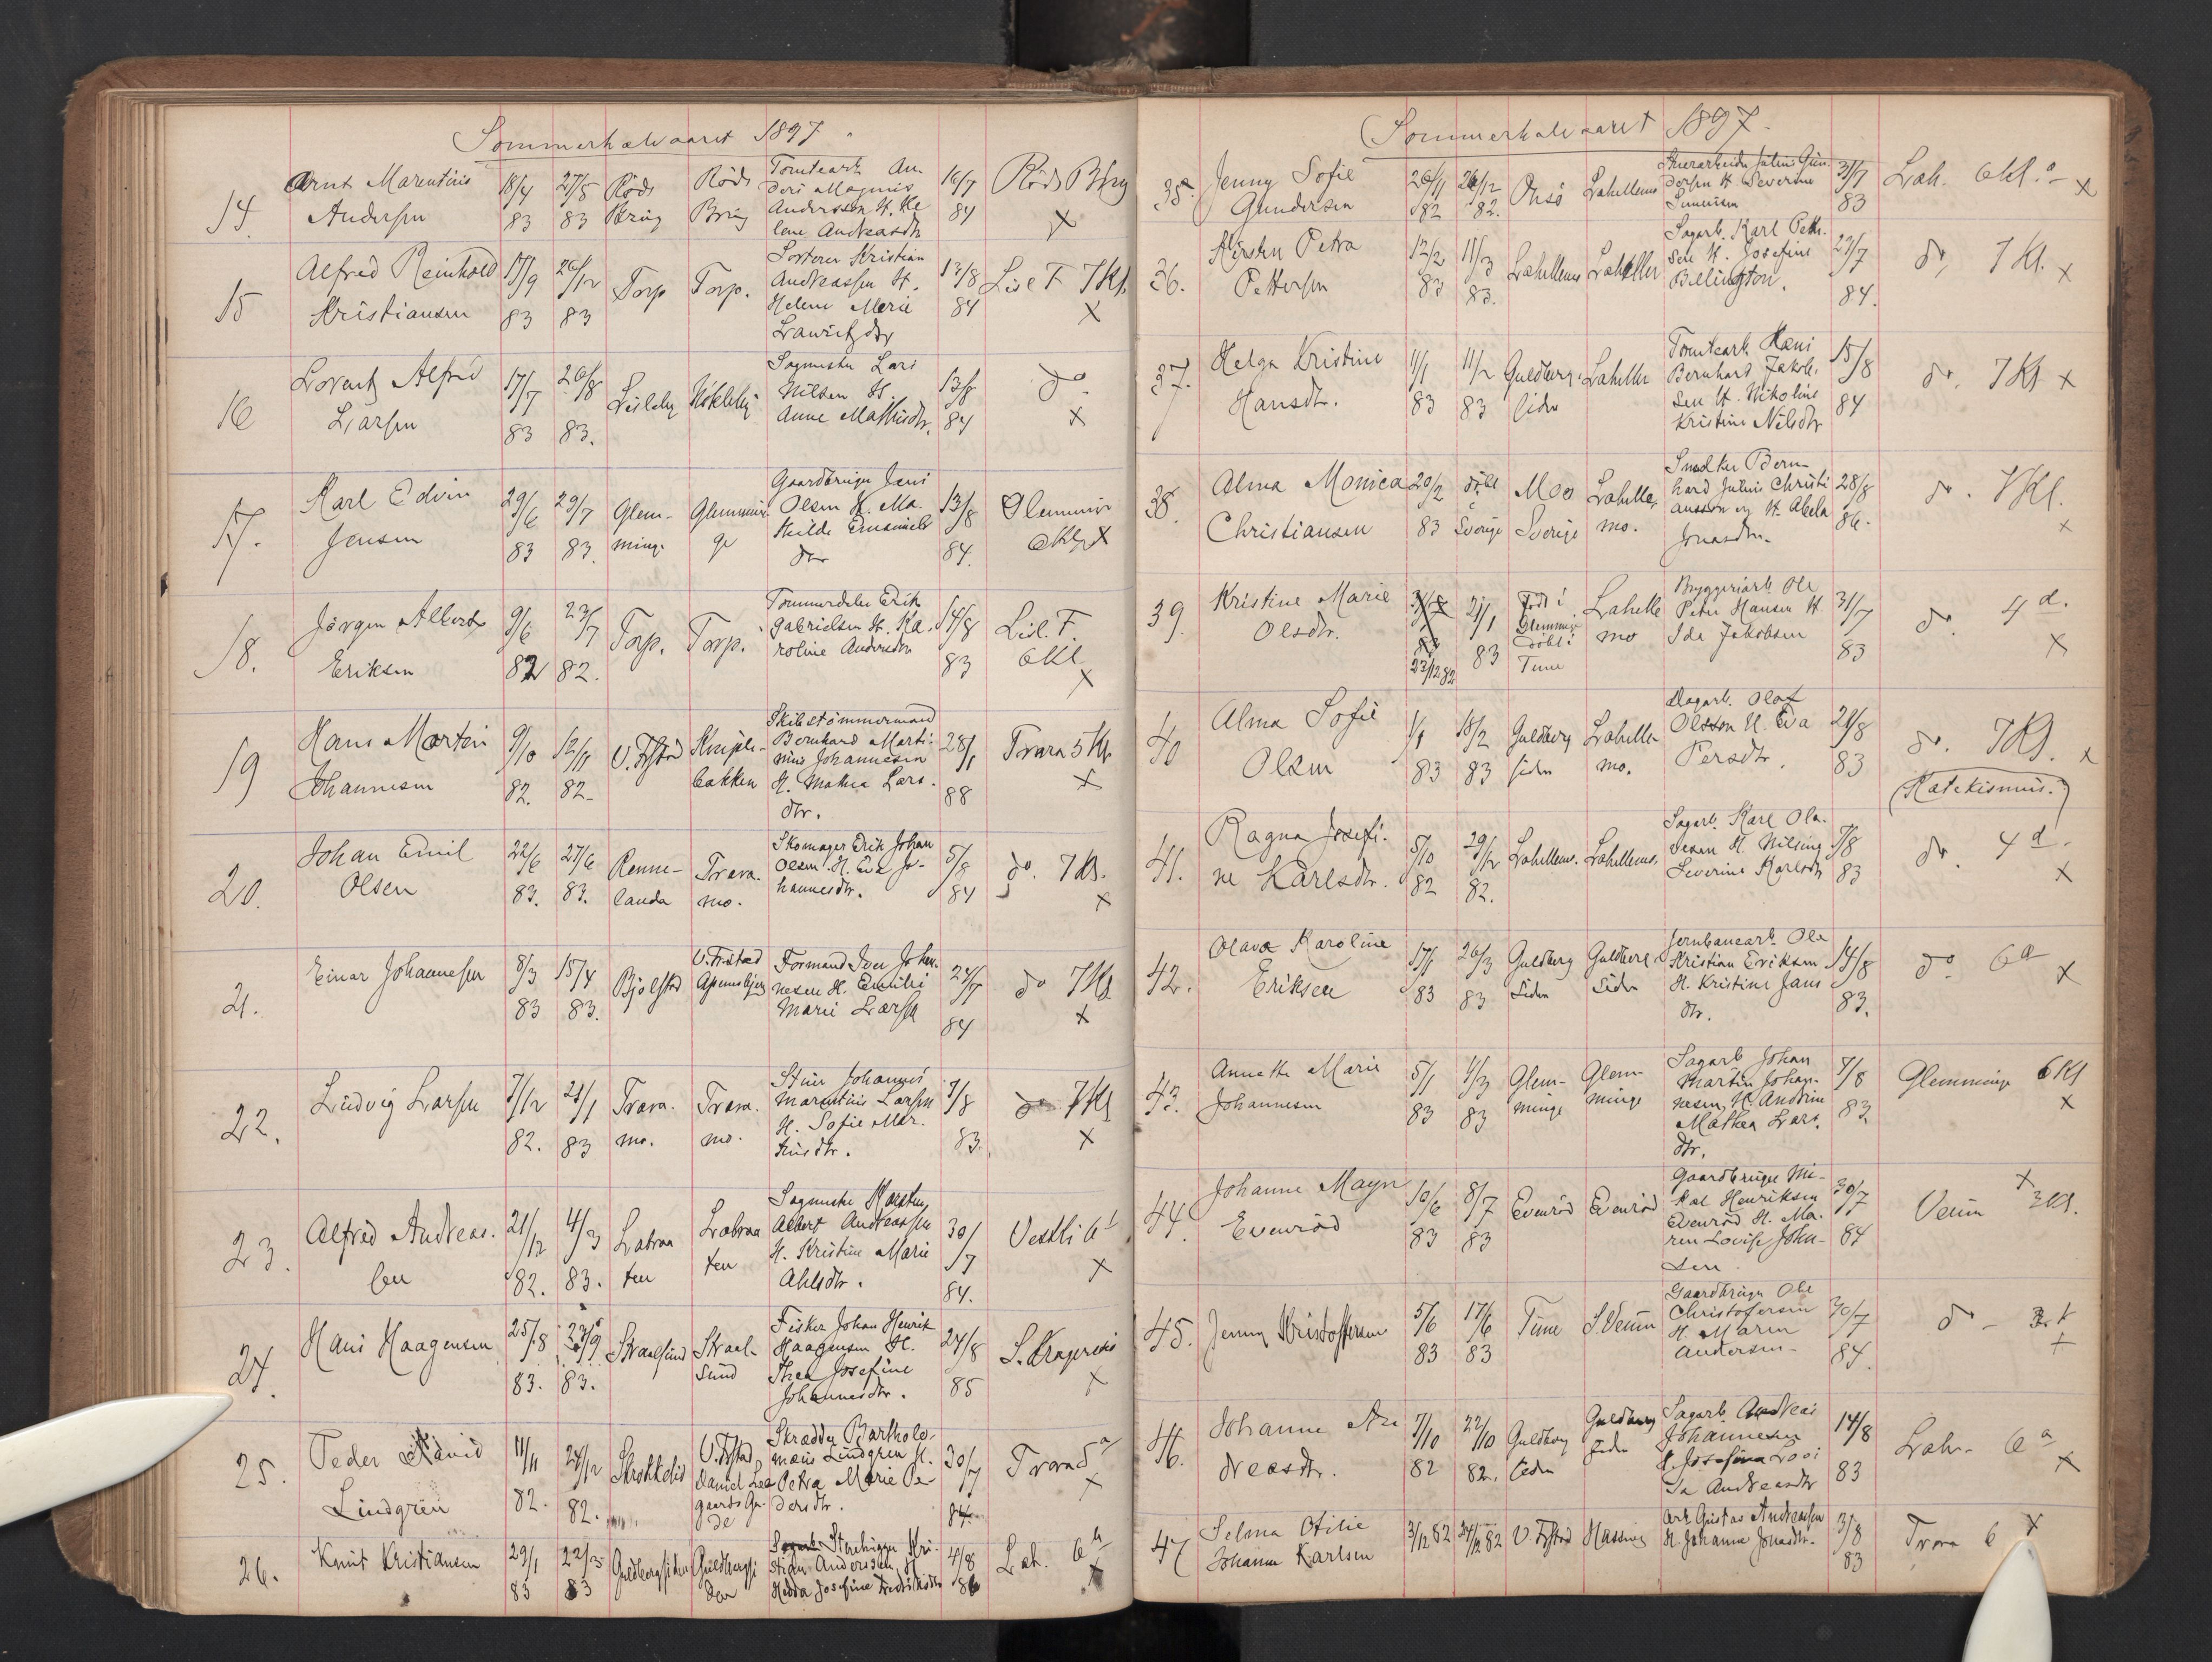 Sommerhalvaaret 1897.
14. Arnt Marentinius Andersen 18/4 83 27/5 83 Röds Brúg Röds Brúg Tomtearb. An
ders Magnus
Andersson H. He
lene Andreasdtr 16/7 84 Röds Brúg X
15 Alfred Reinhold Kristiansen 17/9 83 26/12 83 Torp Torp. Sorterer Kristian
Andreassen H.
Helene Marie
Lawritzdtr 13/8 84 Lisl. F. 7 Kl. X
16 Lorentz Alfred Larsen 17/7 83 26/8 83. Lisleby Kokleby Sagmester Lars
Nilsen H.
Anne Mathisdtr. 13/8 84 do X
17. Karl Edvin Jensen 29/6 83 29/7 83. Glem-
minge Glemmin-
ge Gaardbruger Jens
Olsen H. Ma-
thilde Emanuels
dtr 13/8 84. Glemminge 6 Kl. X
18. Jörgen Albert Eriksen 9/6 82 23/7 82. Torp. Torp. Tømmerdeler Erik
Gabrielsen H. Ka-
roline Andersdtr 14/8 83 Lisl. F. 6 Kl. X
19 Hans Martin Johannesen 9/10 82. 12/11 82- V. Frstad Kniple-
bakken Skibstømmermand
Bernhard Marti-
nius Johannesen
H. Mathea Lars-
dtr. 28/1 88 Trara 5 Kl. X
20. Johan Emil Olsen 22/6 83. 27/6 83. Renne-
landa Trara.
mo. Skomager Erik Johan
Olsen H. Eva Jo-
hannesdtr. 5/8 84 do. 7 Kl. X
21. Einar Johannesen 8/3 83 15/4 83. Bjölstad V. Frstad
Apenesfjer Formand Iver Johan-
nesen H. Emilie
Marie Larsen 24/7 84 do 7 Kl. X
22. Ludvig Larsen 7/12 82. 21/1 83 Trara.
mo. Trara.
mo. Stuer Johannes
Marentius Larsen
H. Sofie Mar-
tinsdtr. 7/8 83. do. 7 Kl X
23. Alfred Andreas-
sen 21/12 82. 4/3 83. Labraa
ten Labraa
ten Sagmester Karsten
Albert Andreassen
H. Kristine Marie
Ahlsdtr. 30/7 84. Vestli 6 X
24. Hans Haagensen 25/8 83. 23/9 83. Straalsund Straal-
sund Fisker Johan Henrik
Haagensen H.
Thea Josefine
Johannesdtr. 24/8 85 S. Kragerø X
25. Peder David Lindgren 11/11 82. 24/12 82. Strokkelid V. Frstad
Daniel Lee
gaards Ga-
de Skrædder Bartholo-
mæus Lindgren H.
Petra Marie Pe-
dersdtr. 30/7 84. Trara 5 a X
26. Knut Kristiansen 29/1 83 22/3 83 Guldbergsiden Guldbergsi
den Stenhugger Kri-
stian Anderssen H.
Hedda Josefine Fredriksdtr 4/8 86 Lah. 6 X
Sommerhalvaaret 1897.
35. Jenny Sofie Gundersen 26/11 82 26/12 82. Onsö Lahellemo Stuerarbeider Julius Gun-
dersen H. Severine
Simensen 31/7 83 Lah. 6 Kl. a X
36. Kirsten Petra Pettersen 12/2 83 11/3 83. Lahellemo Lahelle Sagarb. Karl Petter-
sen H. Josefine
Bellington. 27/7 84. do, 7 Kl. X
37. Helga Kristine Hansdtr. 11/1 83 11/2 83 Guldberg-
siden Lahelle Tomtearb. Hans
Bernhard Jakob-
sen H. Nikoline
Kristine Nilsdtr 15/8 84 do. 7 Kl X
38. Alma Monica Christiansen 20/2 83 döbt
i
Sverige Moo
Sverige Lahelle
mo. Snedker Bern-
hard Julius Christi
ansson og H. Abela
Jonasdtr. 28/8 86. do. 7 Kl. X
39. Kristine Marie Olsdtr. 23/12 82 21/1 83 Født i
Glemminge
döbt i
Tune Lahelle
mo Bryggeriarb. Ole
Peter Hansen H.
Ida Jakobsen 31/7 83 do. 4 d. X
40 Alma Sofie Olsen 1/1 83 18/2 83 Guldberg
siden Lahelle
mo. Dagarb. Olof
Olsson H. Eva
Persdtr. 21/8 83 do. 7 Kl. X
(Katekismus.)
41. Ragna Josefi-
ne Karlsdtr. 5/10 82 29/12 82. Lahellemo. Lahellemo. Sagarb. Karl Ola-
vesen H. Nilsine
Severine Karlsdtr 7/8 83 do. 4 d. X
42. Olava Karoline Eriksen 17/1 83 26/3 83 Guldberg
siden Guldberg-
siden Jernbanearb. Ole
Kristian Eriksen
H. Kristine Jans
dtr. 14/8 83. do 6 a X
43. Annette Marie Johannesen 5/1 83 4/3 83 Glem-
minge Glem-
minge Sagarb. Johan
Martin Johan-
nesen, H. Andrine
Mathea Lars-
dtr. 7/8 83 Glemminge 6 Kl X
44. Johanne Mayn Evenröd 10/6 83 8/7 83 Evenröd Evenröd Gaardbruger Mi-
kal Henriksen
Evenröd H. Ma-
ren Lovise John-
sen. 30/7 84 Veum 3 Kl. X
45. Jenny Kristoffersen 5/6 83 17/6 83 Tune S. Veum Gaardbruger Ole
Christofersen
H. Maren
Andersen- 30/7 84. do - 3. k X
46. Johanne An
dreasdtr. 7/10 82 22/10 82. Guldberg
siden Guldberg
siden Sagarb. Andreas
Johannesen
H. Josefina Lovi
sa Andreasdtr 14/8 83 Lah- 6 a X
47 Selma Otilie
Johanne Karlsen 3/12 82 24/12 82 V. Frstad Hassing Arb. Gustav Andreassen
H. Johanne Jonasdtr. 3/8 83 Trara 6 X